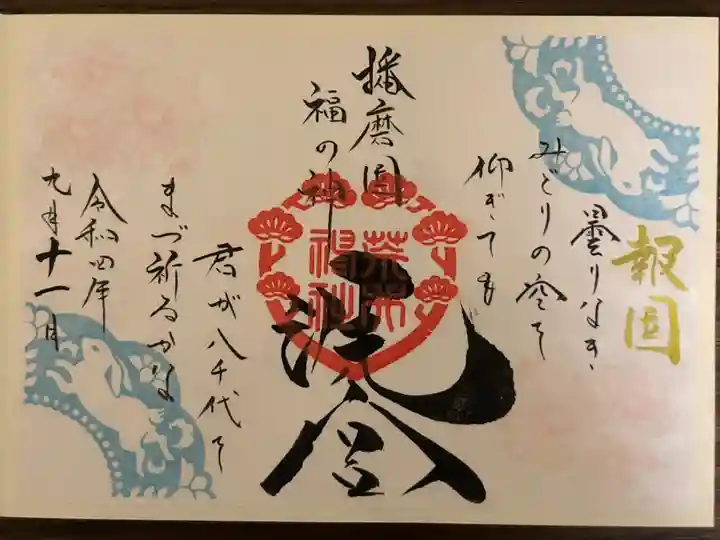 報国
曇りなき
みどりの空を
仰ぎても
播磨国
福の神
君が八千代を
まづ祈るかな
令和四年
九月十一日